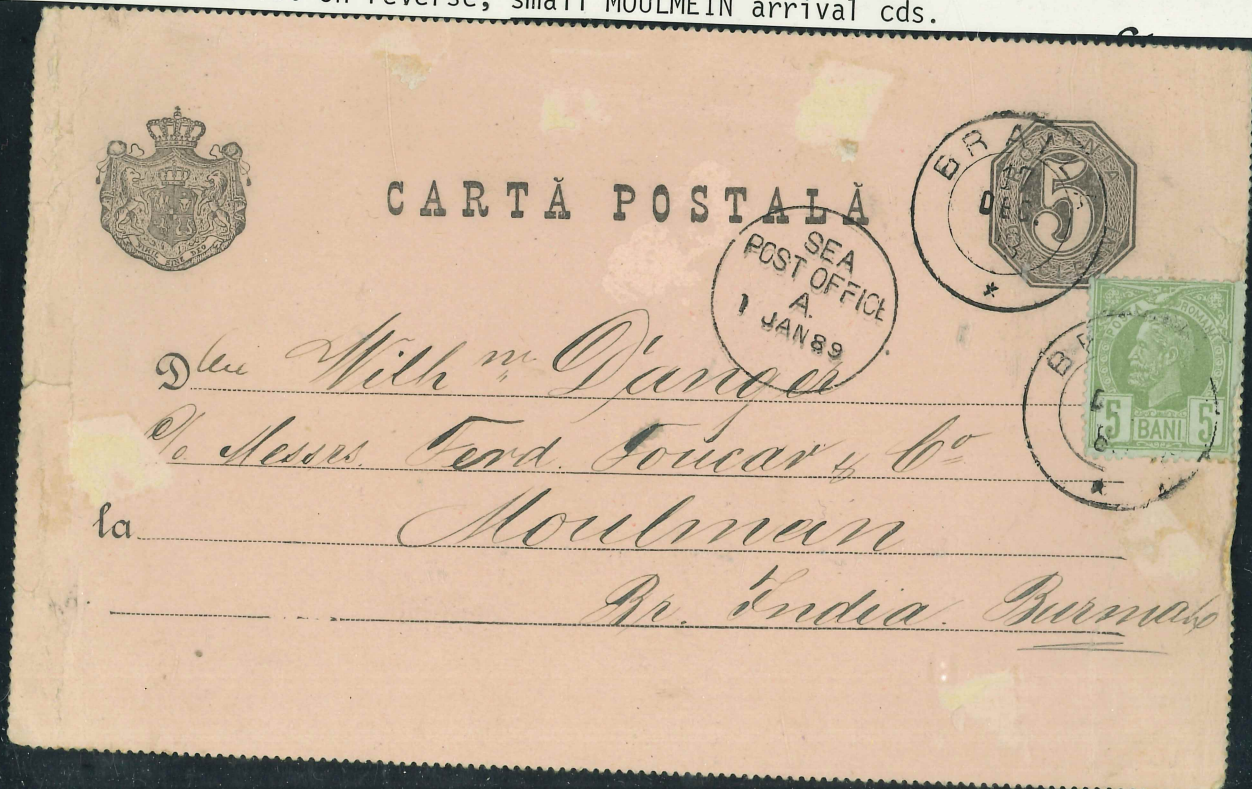 on reverse, small MOULMEIN arrival cds.
CARTĂ POSTALĂ
5
DEC.
SEA
POST OFFICE
A.
1 JAN 89
NIHIL SINE DEO
5 BANI 5
D Wilhm D'anger
c/o Messrs. Ferd. Foucar & Co
la Moulmain
Br. India. Burmah